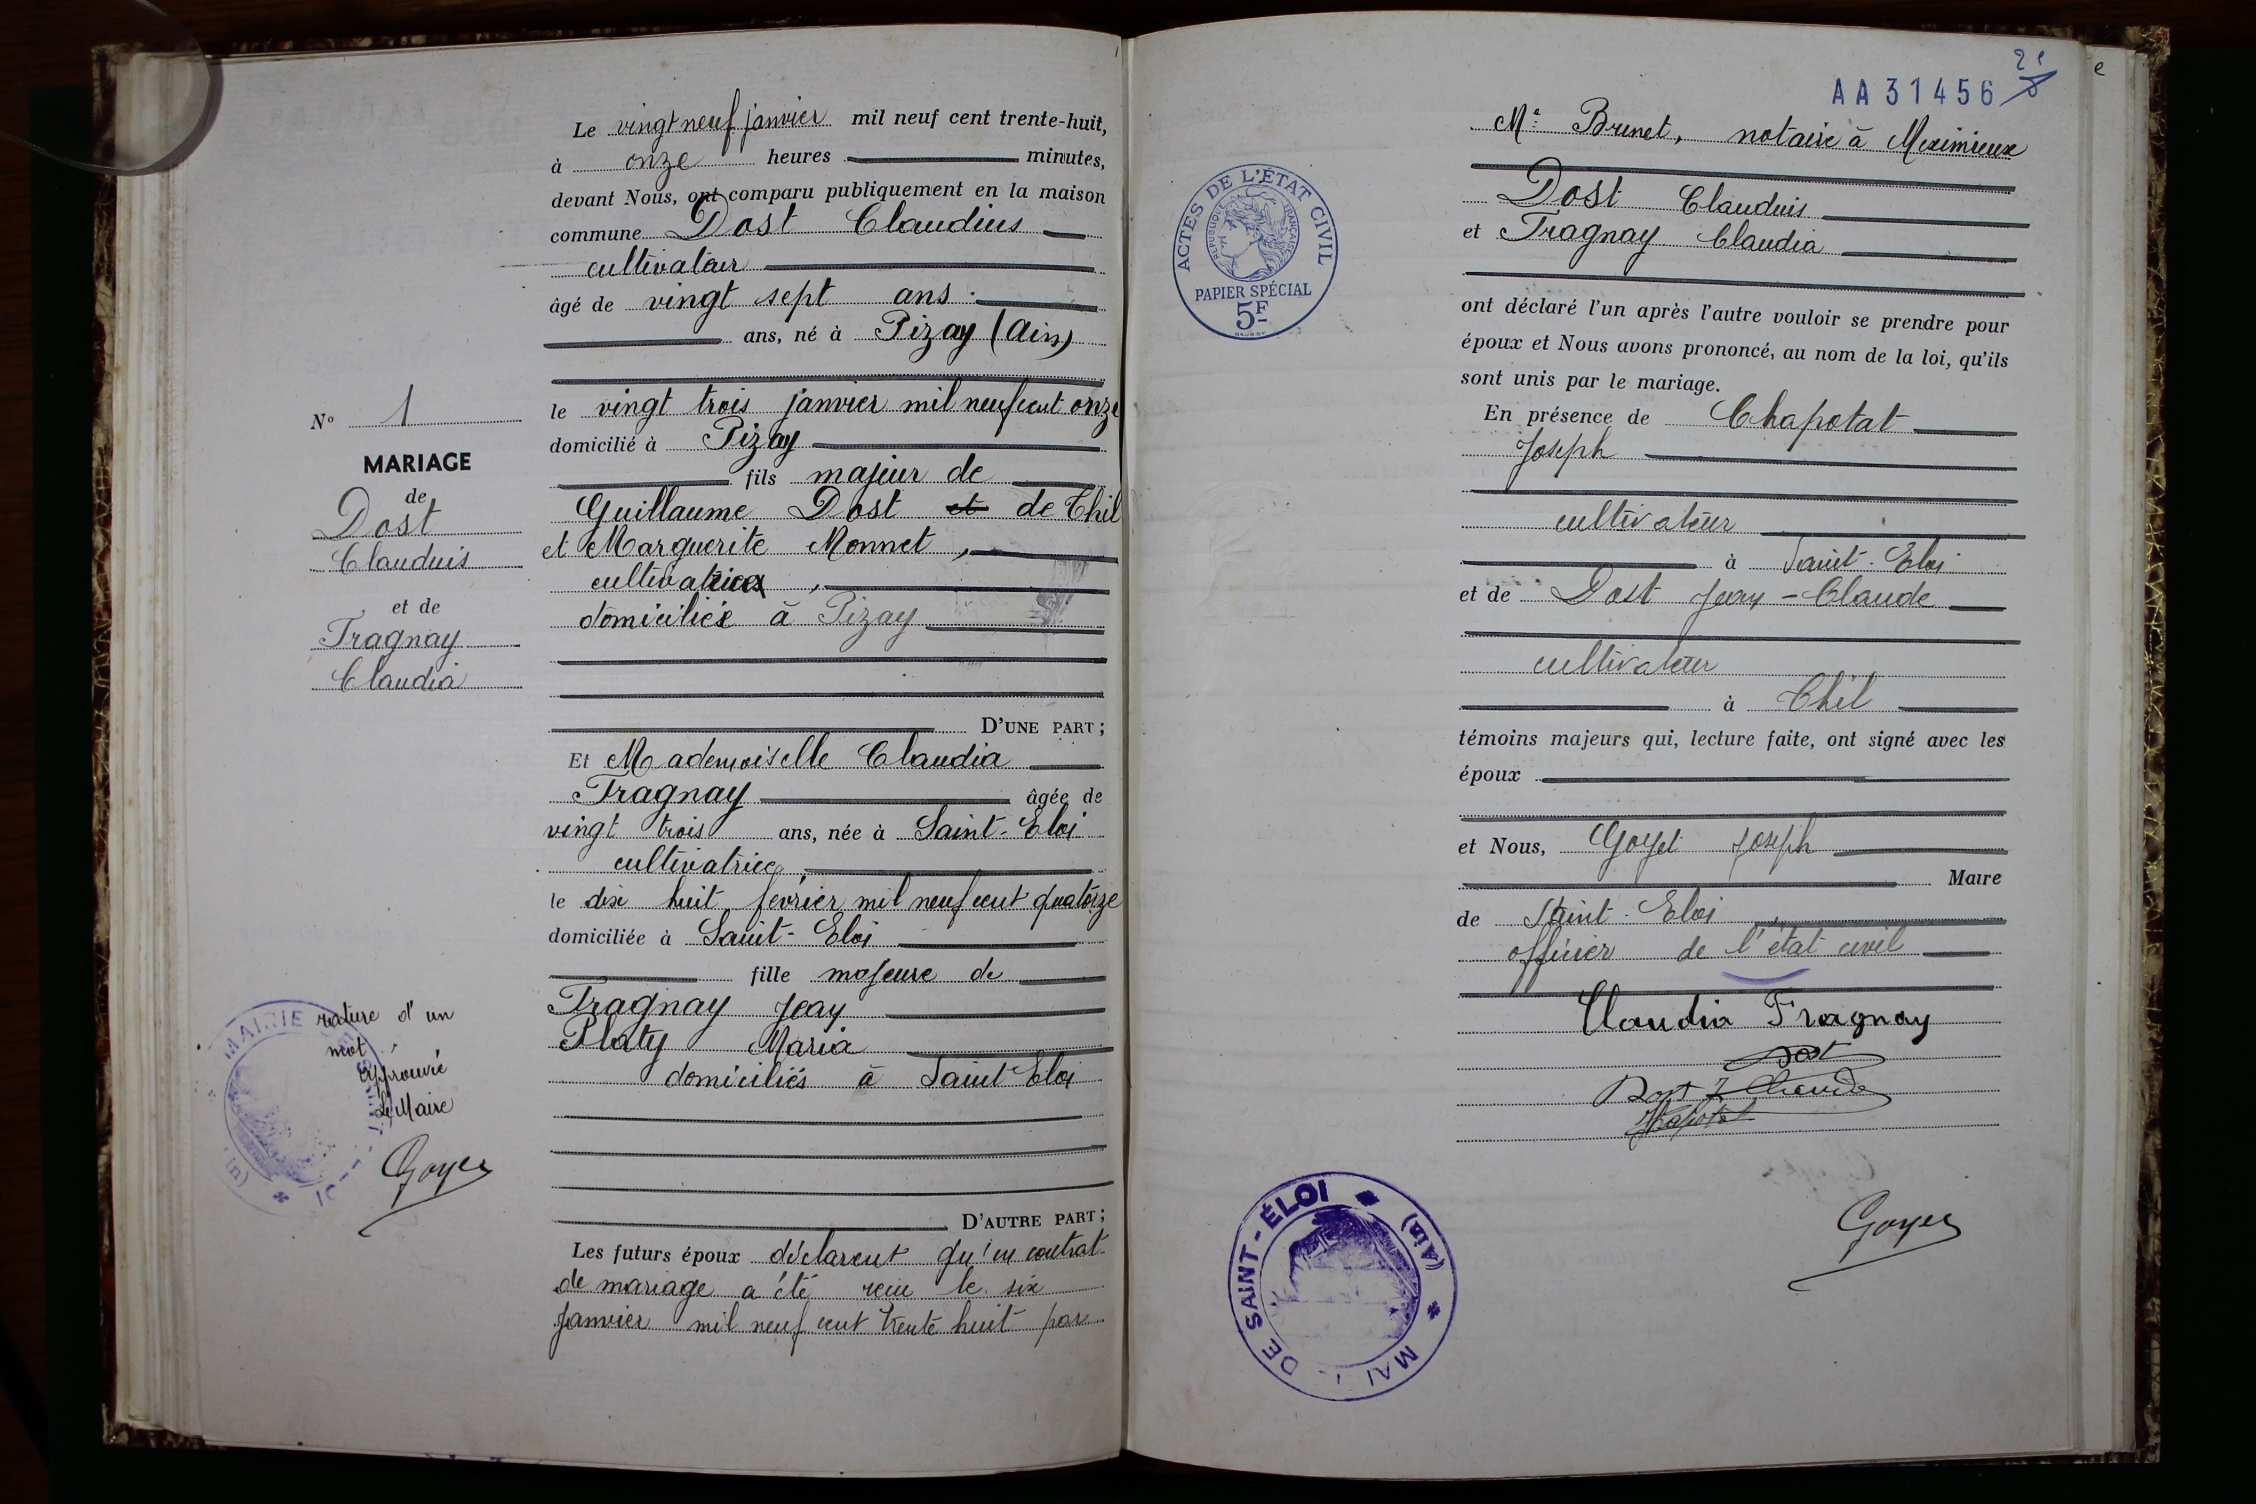 Le vingt neuf janvier mil neuf cent trente-huit,
à onze heures minutes,
devant Nous, ont comparu publiquement en la maison
commune Dost Claudius
cultivateur
âgé de vingt sept ans
ans, né à Pizay (Ain)
le vingt trois janvier mil neuf cent onze
domicilié à Pizay
fils majeur de
Guillaume Dost et de Thil
et Marguerite Monnet,
cultivatrice,
domiciliée à Pizay
D'UNE PART;
Et Mademoiselle Claudia
Fragnay âgée de
vingt trois ans, née à Saint-Eloi
cultivatrice,
le dix huit février mil neuf cent quatorze
domiciliée à Saint-Eloi
fille majeure de
Fragnay Jean
Platy Maria
domiciliés à Saint Eloi
D'AUTRE PART;
Les futurs époux déclarent qu'un contrat
de mariage a été reçu le six
janvier mil neuf cent trente huit par
N° 1
MARIAGE
de
Dost
Claudius
et de
Fragnay
Claudia
rature d'un
mot
approuvé
Le Maire
Goyet
MAIRIE
AA 31456
21
e
Me Brunet, notaire à Meximieux
ACTES DE L'ÉTAT CIVIL
RÉPUBLIQUE FRANÇAISE
PAPIER SPÉCIAL
5F
Dost Claudius
et Fragnay Claudia
ont déclaré l'un après l'autre vouloir se prendre pour
époux et Nous avons prononcé, au nom de la loi, qu'ils
sont unis par le mariage.
En présence de Chapotat
Joseph
cultivateur
à Saint-Eloi
et de Dost Jean-Claude
cultivateur
à Thil
témoins majeurs qui, lecture faite, ont signé avec les
époux
et Nous, Goyet Joseph
Maire
de Saint-Eloi,
officier de l'état civil
Claudia Fragnay
Dost
Dost J Claude
Chapotat
Goyet
MAI DE SAINT-ÉLOI * (Ain) *